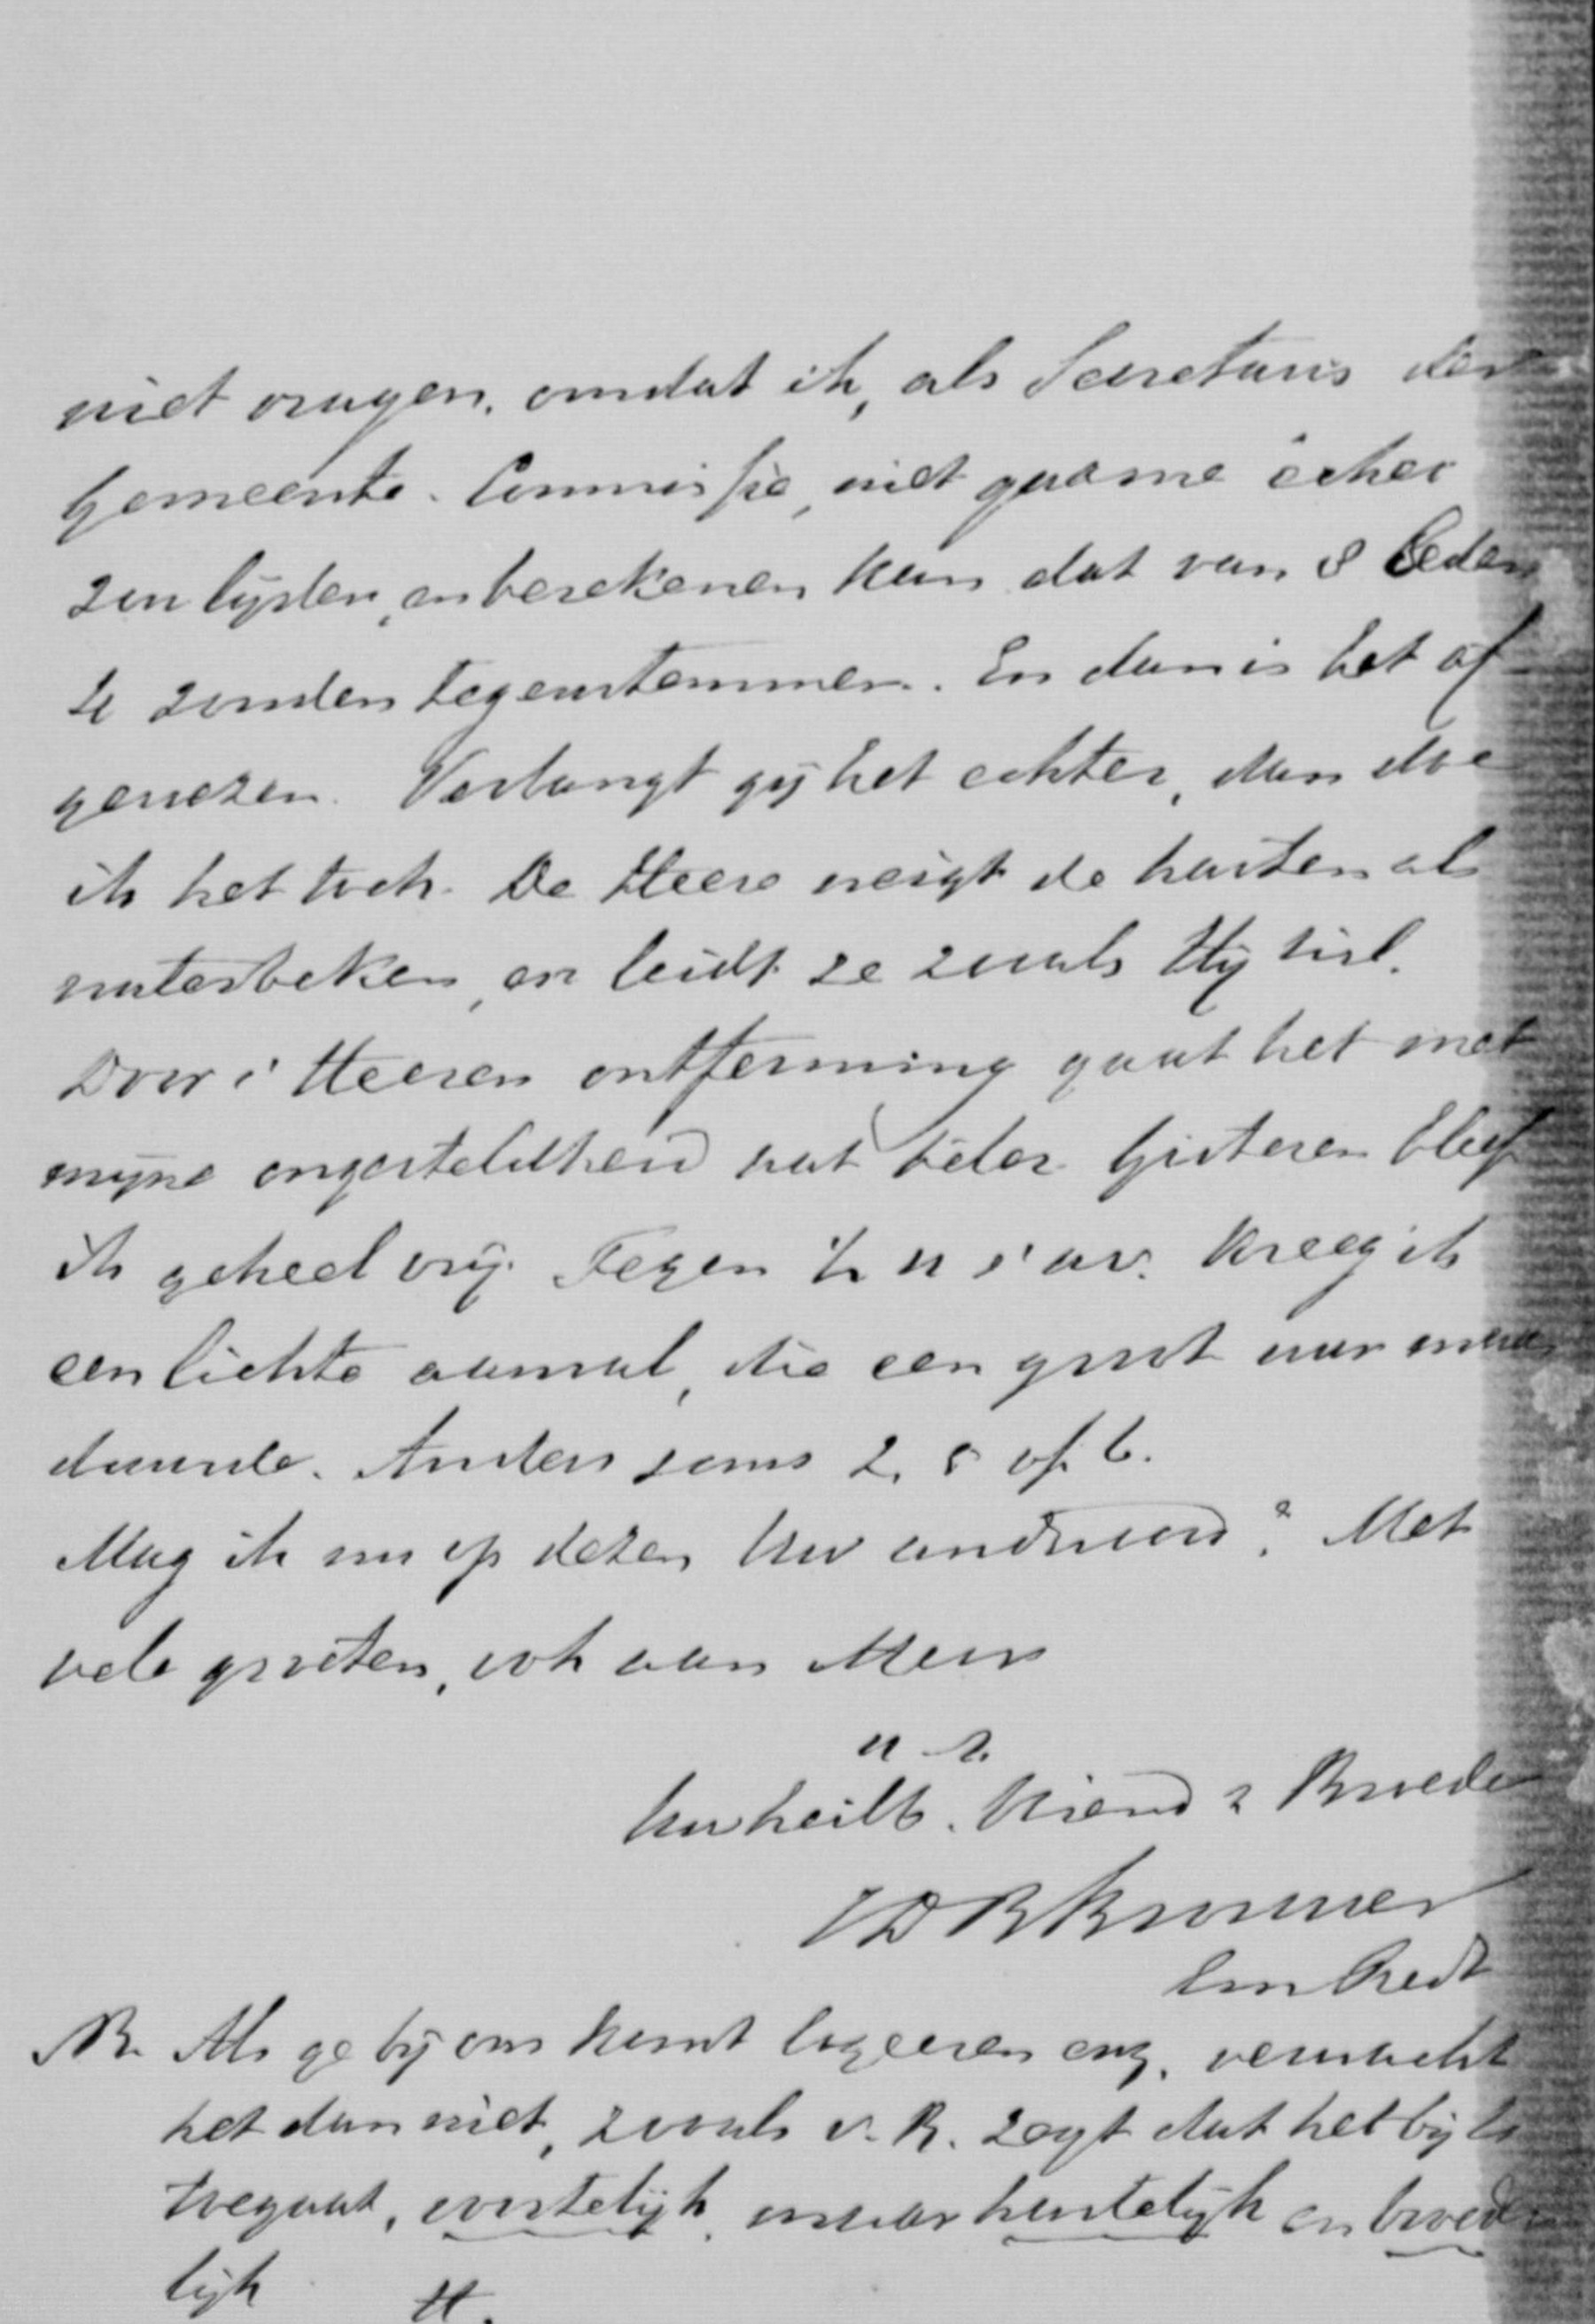 niet vragen, omdat ik, als Secretaris der
Gemeente-Commissie, niet gaarne échec
zou lijden, en berekenen kan dat van 8 Leden
zouden tegenstemmen. En dan is het af-
gewezen. Verlangt gij het echter, dan doe
ik het toch. De Heere neigt de harten als
waterbeken, en leidt ze zooals Hij wil.
Door 's Heeren ontferming gaat het met
mijne ongesteldheid wat beter. Gisteren bleef
ik geheel vrij. Tegen 's av. kreeg ik
een lichte aanval, die een groot uur maar
duurde. Anders soms 2, 5 of 6.
Mag ik nu op dezen Uw andwoord? Met
vele groeten, ook aan Mevr
Uw heilb. Vriend & Broeder
JDBBrouwer
Em Predt
NB. Als ge bij ons komt logeeren enz. verwacht
het dan niet, zooals v. R. zegt dat het bij
toegaat, vorstelijk, maar hartelijk en broeder
lijk